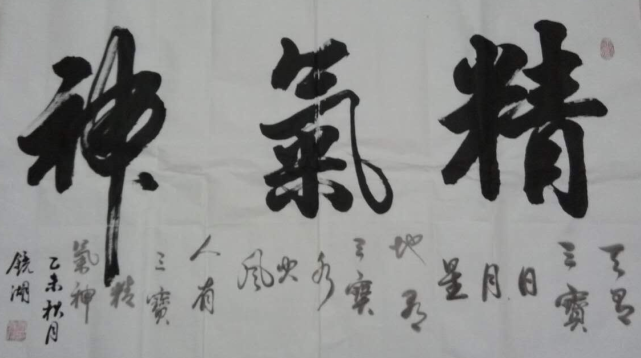 精氣神
天有
三寶
日
月
星
地有
三寶
水
火
風
人有
三寶
精
氣神
乙未秋月
鏡湖